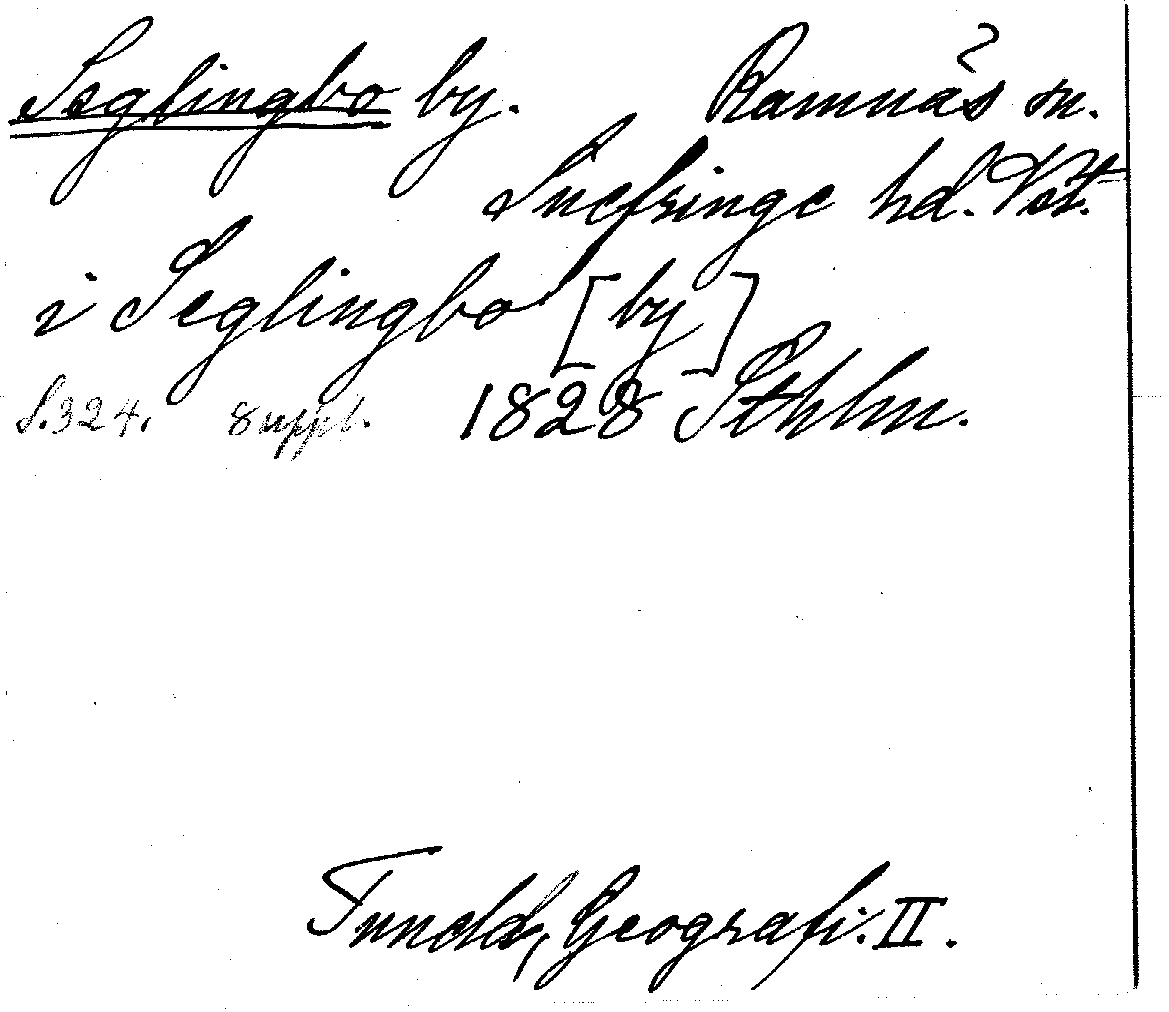 Seglingbo by. Ramnäs sn.
Snefringe hd. Vst.
i Seglingbo [by]
S.324. Suppl. 1828 Sthlm.
Tuneld, Geografi. II.